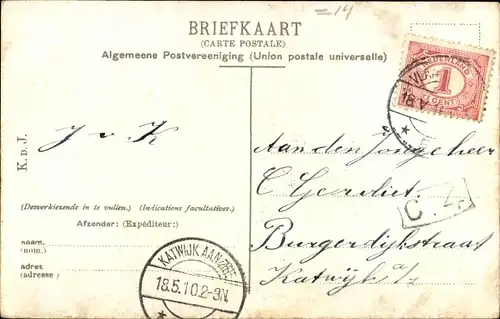 =14
BRIEFKAART
(CARTE POSTALE)
Algemeene Postvereeniging (Union postale universelle)
NEDERLAND
1
CENT
18.5
K.D.J.
J v K
Aan den Jonge heer
C. Gervliet
C. 4.
Burgerdijkstraat
Katwijk a/z
(Desverkiezende in te vullen.) (Indications facultatives.)
Afzender: (Expéditeur:)
naam.
(nom.)
adres
(adresse)
KATWIJK AAN ZEE
18.5.10.2-3N.